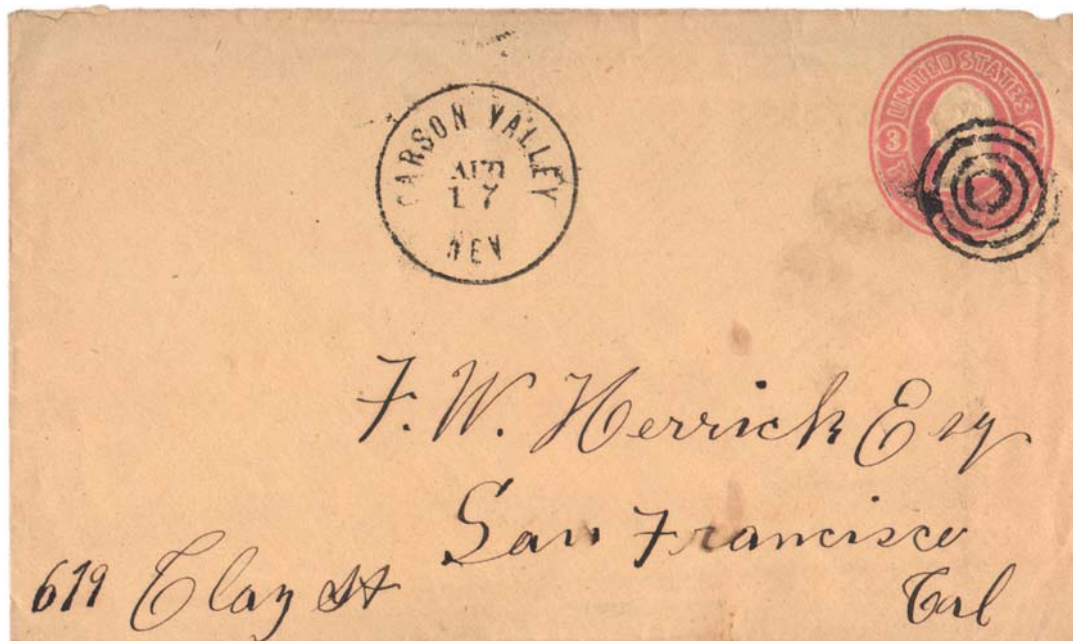 UNITED STATES
3
CARSON VALLEY
APR
17
NEV
F. W. Herrick Esq
San Francisco
619 Clay St Cal